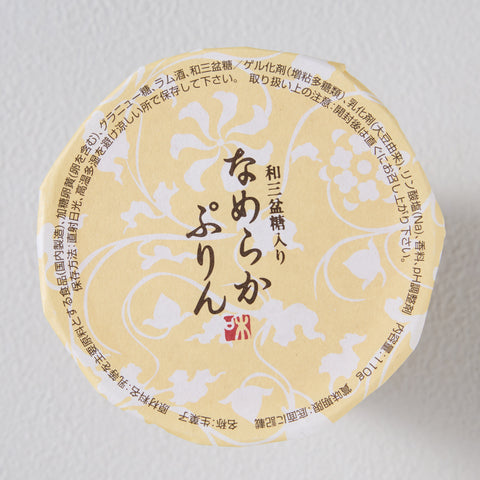 和三盆糖入り
なめらか
ぷりん
名称:生菓子 原材料名:乳等を主要原料とする食品(国内製造)、加糖卵黄(卵を含む)、グラニュー糖、ラム酒、和三盆糖/ゲル化剤(増粘多糖類)、乳化剤(大豆由来)、リン酸塩(Na)、香料、pH調整剤 内容量:110g 賞味期限:底面に記載
保存方法:直射日光、高温多湿を避け涼しい所で保存して下さい。 取り扱い上の注意:開封後は直ぐにお召し上がり下さい。